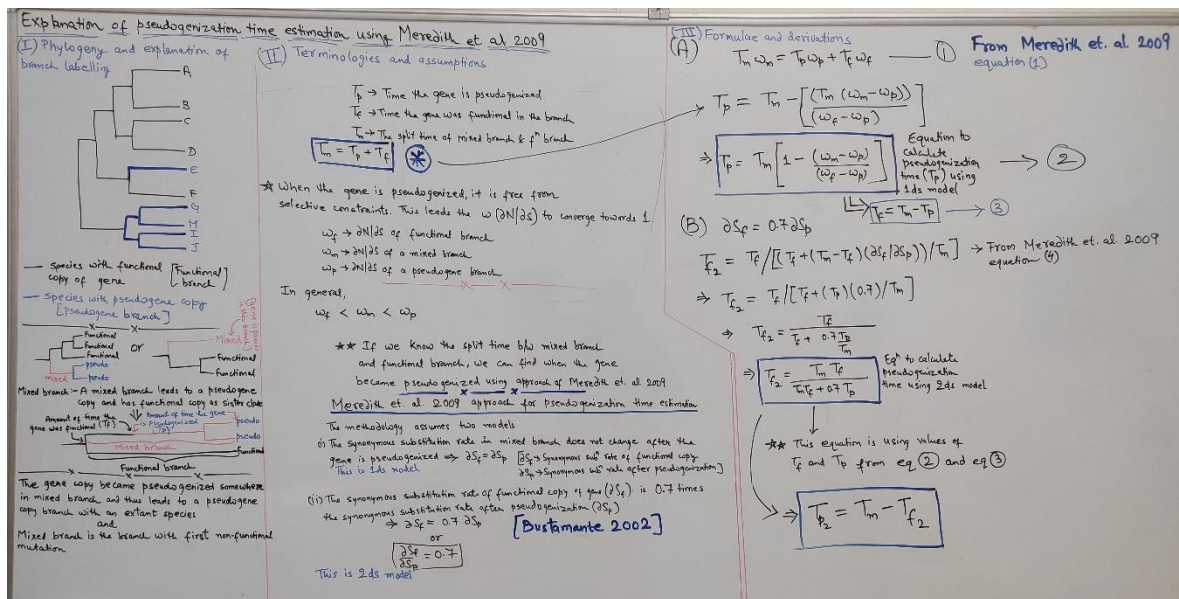 Explanation of pseudogenization time estimation using Meredith et. al 2009
(I) Phylogeny and explanation of
branch labelling
A
B
C
D
E
F
G
H
I
J
— Species with functional [Functional
copy of gene branch]
— Species with pseudogene copy
[pseudogene branch]
Functional
Functional
Functional
pseudo
pseudo
mixed
or
Mixed
Functional
Functional
Mixed branch:- A mixed branch leads to a pseudogene
copy and has functional copy as sister clade
Amount of time the
gene was functional (Tf)
Amount of time the gene
is pseudogenized
(Tp)
pseudo
pseudo
Mixed branch
Functional
Functional branch
The gene copy became pseudogenized somewhere
in mixed branch and thus leads to a pseudogene
copy branch with an extant species
and
Mixed branch is the branch with first non-functional
mutation
(II) Terminologies and assumptions
Tp → Time the gene is pseudogenized
Tf → Time the gene was functional in the branch
Tm → The split time of mixed branch & fⁿ branch
Tm = Tp + Tf *
* When the gene is pseudogenized, it is free from
selective constraints. This leads the ω (∂N/∂S) to converge towards 1
ωf → ∂N/∂S of functional branch
ωm → ∂N/∂S of a mixed branch
ωp → ∂N/∂S of a pseudogene branch
In general,
ωf < ωm < ωp
** If we know the split time b/w mixed branch
and functional branch, we can find when the gene
became pseudogenized using approach of Meredith et. al 2009
Meredith et. al 2009 approach for pseudogenization time estimation
The methodology assumes two models
(i) The synonymous substitution rate in mixed branch does not change after the
gene is pseudogenized ⇒ ∂Sf = ∂Sp [∂Sf → Synonymous subⁿ rate of functional copy
∂Sp → Synonymous subⁿ rate after pseudogenization]
This is 1ds model
(ii) The synonymous substitution rate of functional copy of gene (∂Sf) is 0.7 times
the synonymous substitution rate after pseudogenization (∂Sp)
⇒ ∂Sf = 0.7 ∂Sp
[Bustamante 2002]
or
∂Sf/∂Sp = 0.7
This is 2ds model
(III) Formulae and derivations
(A) Tm ωm = Tp ωp + Tf ωf — ①
From Meredith et. al. 2009
equation (1)
Tp = Tm - [(Tm (ωm - ωp))/(ωf - ωp)]
⇒ Tp = Tm [1 - (ωm - ωp)/(ωf - ωp)]
Equation to
calculate
pseudogenization
time (Tp) using
1ds model
→ ②
Tf = Tm - Tp → ③
(B) ∂Sf = 0.7 ∂Sp
Tf2 = Tf/[(Tf + (Tm - Tf)(∂Sf/∂Sp))/Tm] → From Meredith et. al 2009
equation (4)
⇒ Tf2 = Tf/[Tf + (Tp)(0.7)/Tm]
⇒ Tf2 = Tf/(Tf + 0.7 Tp/Tm)
⇒ Tf2 = Tm Tf/(TmTf + 0.7 Tp)
Eqⁿ to calculate
pseudogenization
time using 2ds model
** This equation is using values of
Tf and Tp from eq ② and eq ③
⇒ Tp2 = Tm - Tf2